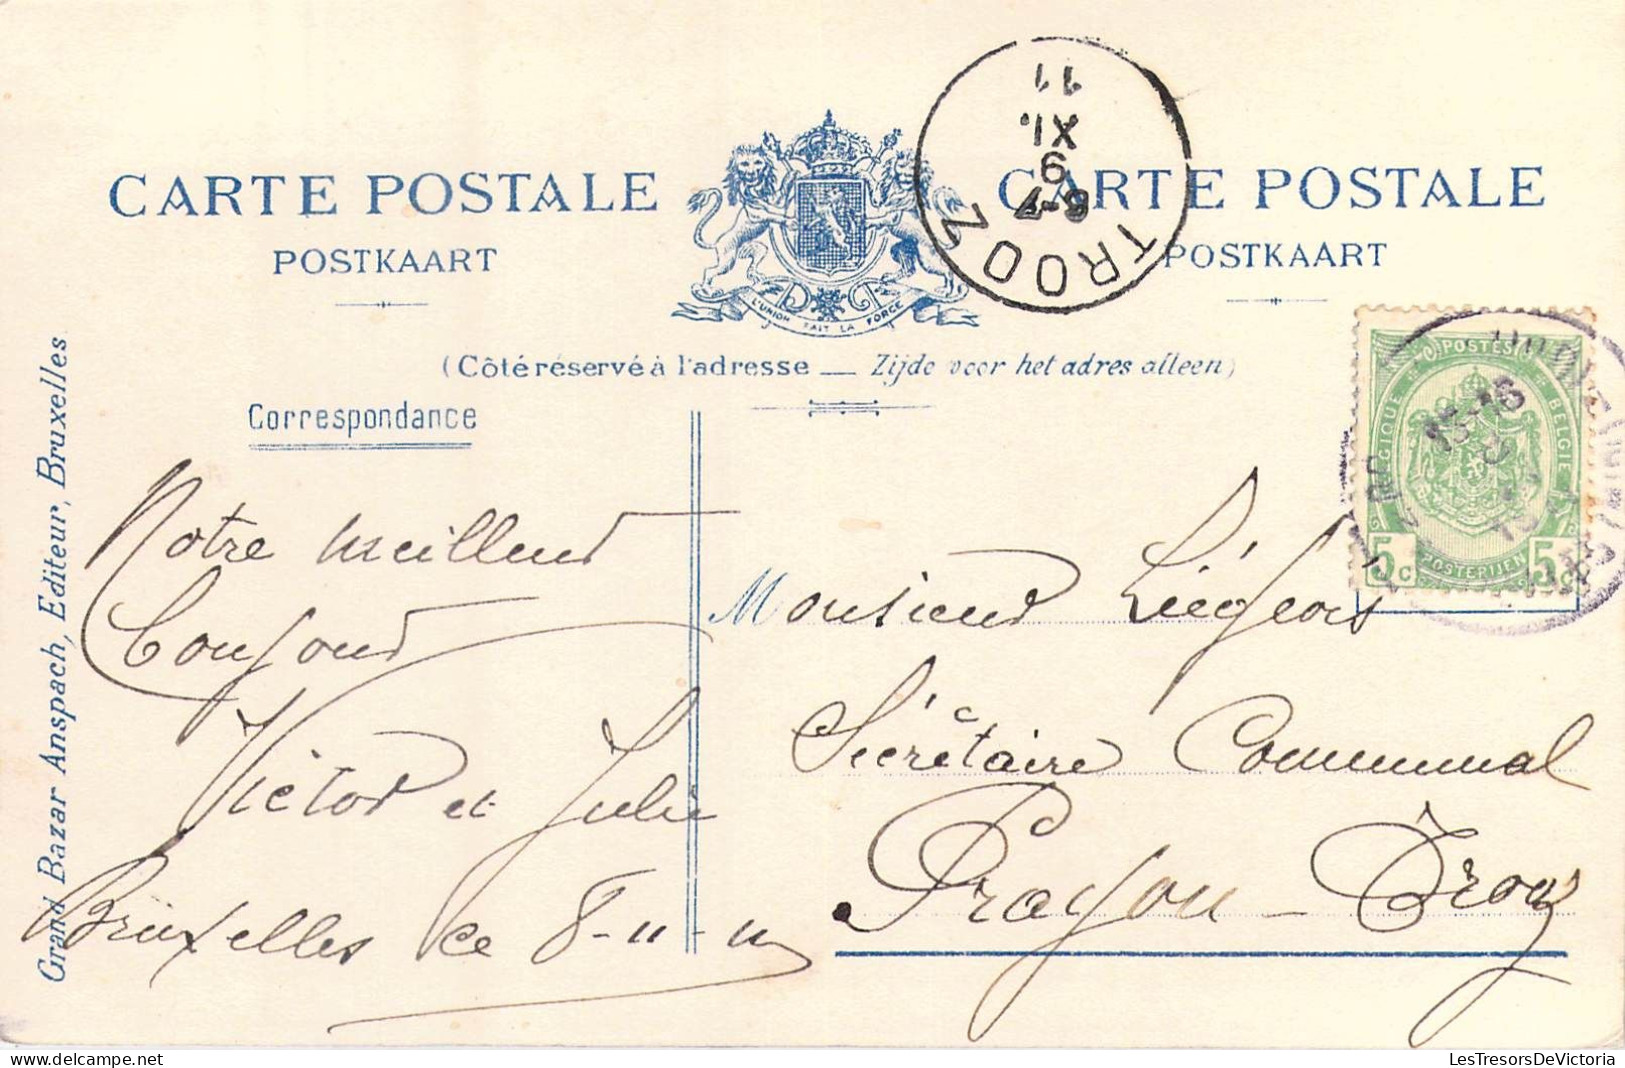 CARTE POSTALE
POSTKAART
CARTE POSTALE
POSTKAART
L'UNION FAIT LA FORCE
TROOZ
6-7
9
XI.
11
(Côté réservé à l'adresse — Zijde voor het adres alleen)
Correspondance
Notre meilleur
Bonjour
Victor et Julie
Bruxelles ce 8-11-11
Monsieur Liégeois
Secrétaire Communal
Prayon-Trooz
POSTES
BELGIQUE
BELGIE
POSTERIJEN
5c
5c
15-16
8
Grand Bazar Anspach, Editeur, Bruxelles
LesTresorsDeVictoria